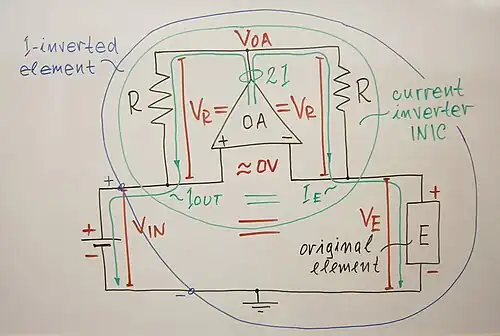 I-inverted
element
VOA
2I
R
VR=
=VR
R
OA
+
-
current
inverter
INIC
≈0V
+
~IOUT
IE~
+
+
VIN
VE
E
-
original
element
-
-